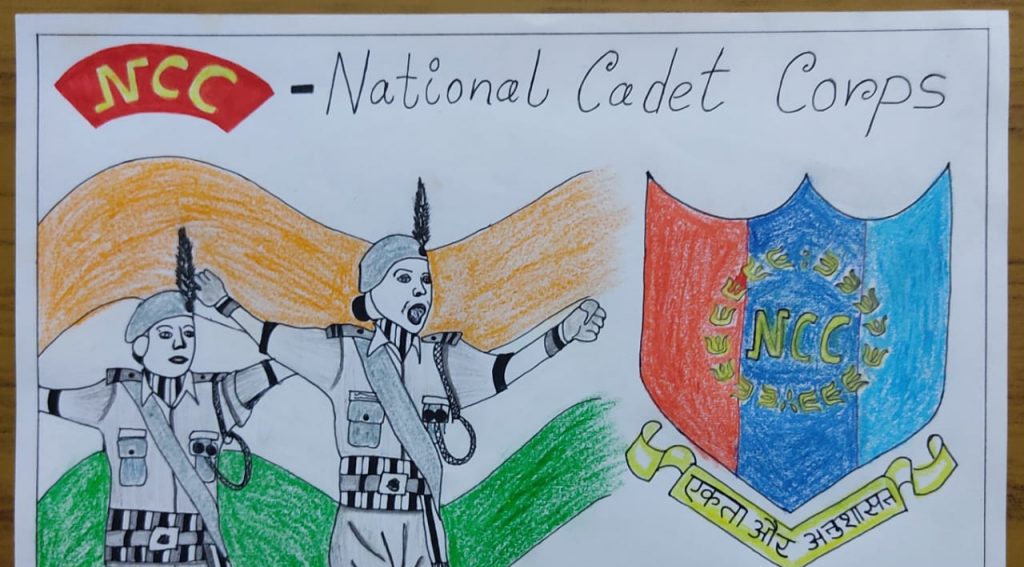 NCC - National Cadet Corps
NCC
एकता और अनुशासन